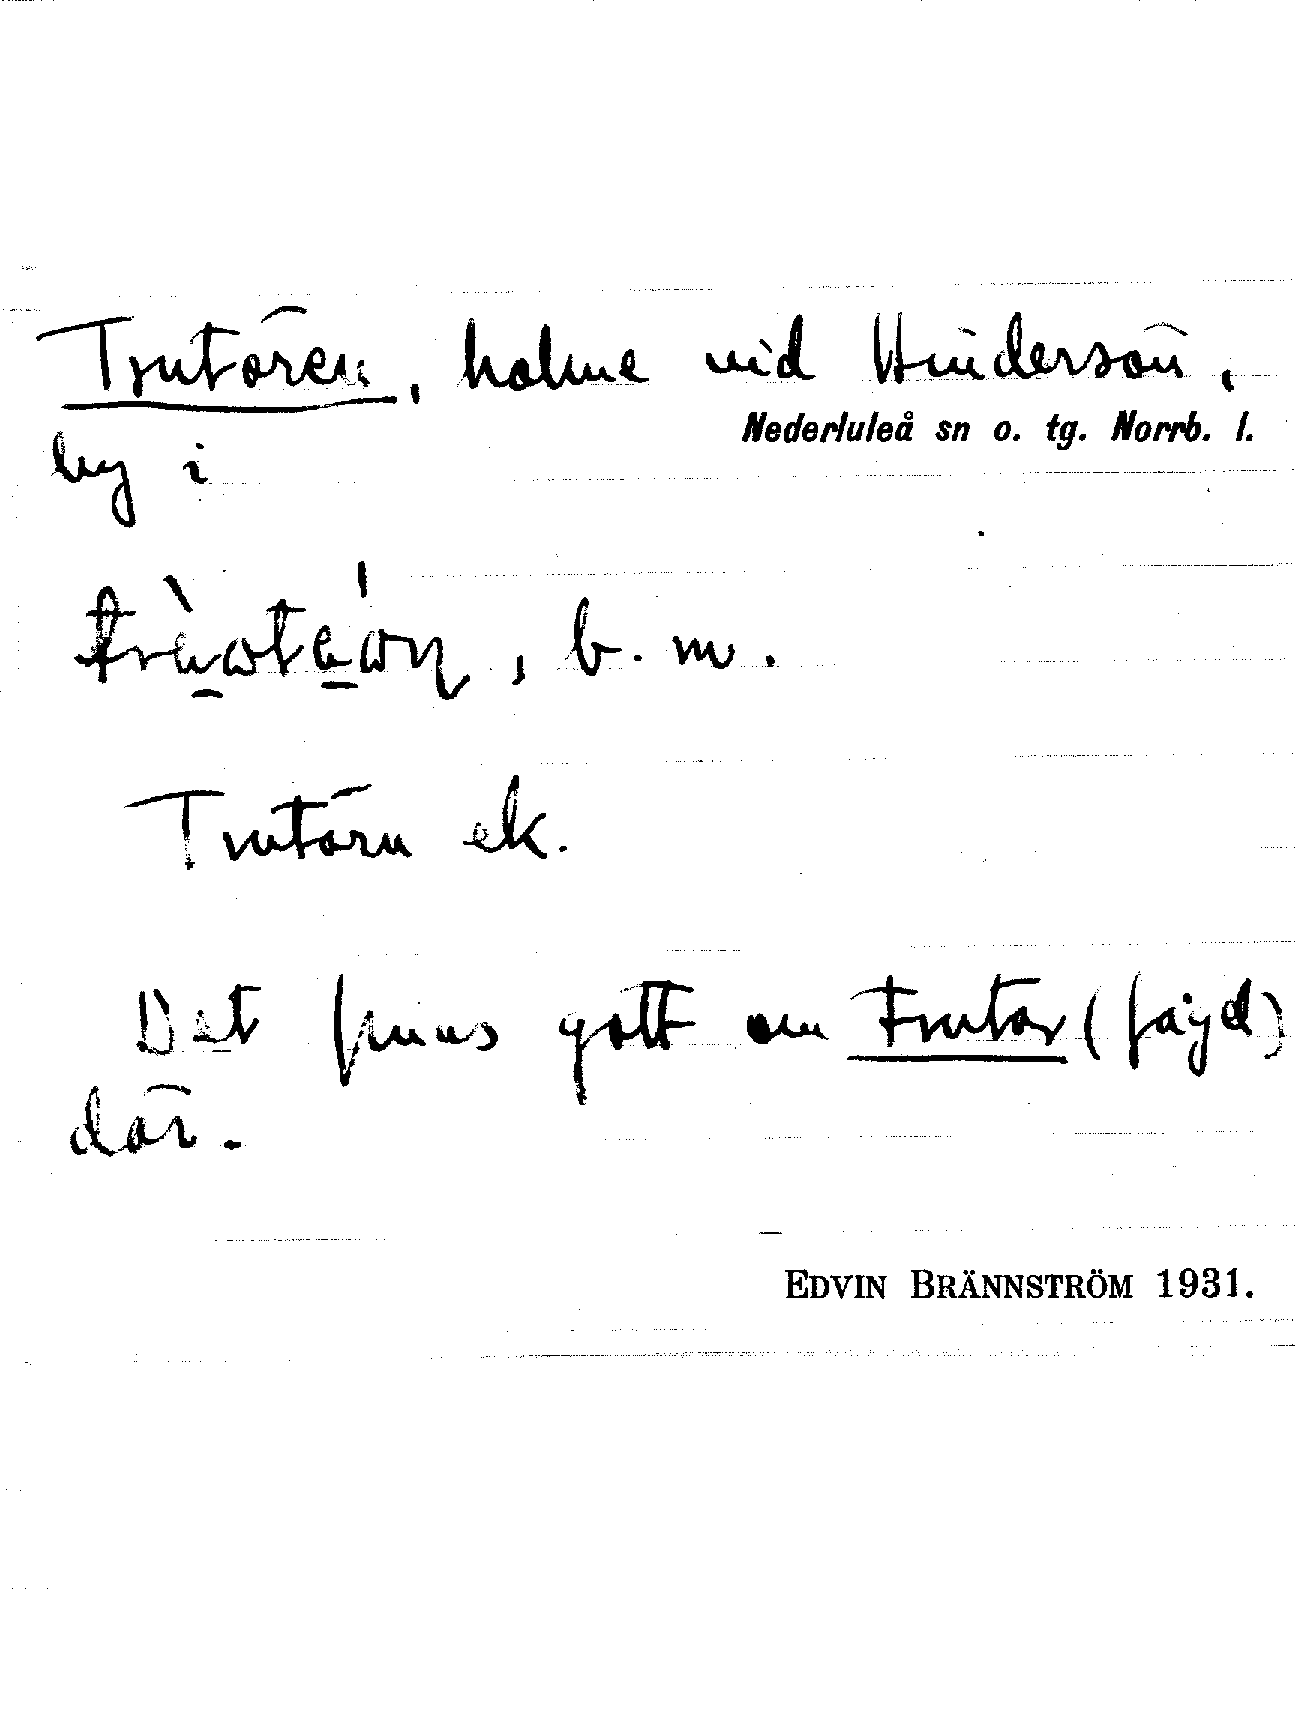 Trutören, holme vid Hindersön,
Nederluleå sn o. tg. Norrb. l.
by i
b. m.
Trutörn ek.
Det finns gott om trutar (fågel)
där.
EDVIN BRÄNNSTRÖM 1931.